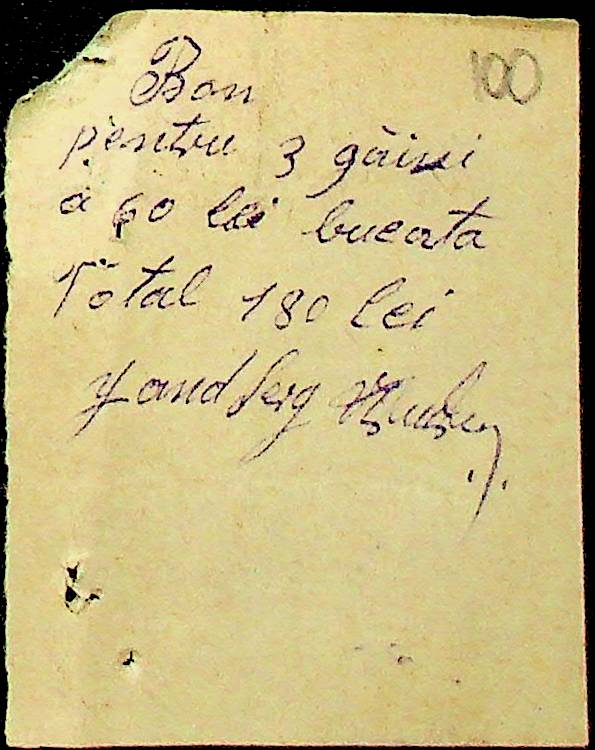 100
Bon
pentru 3 găini
a 60 lei bucata
Total 180 lei